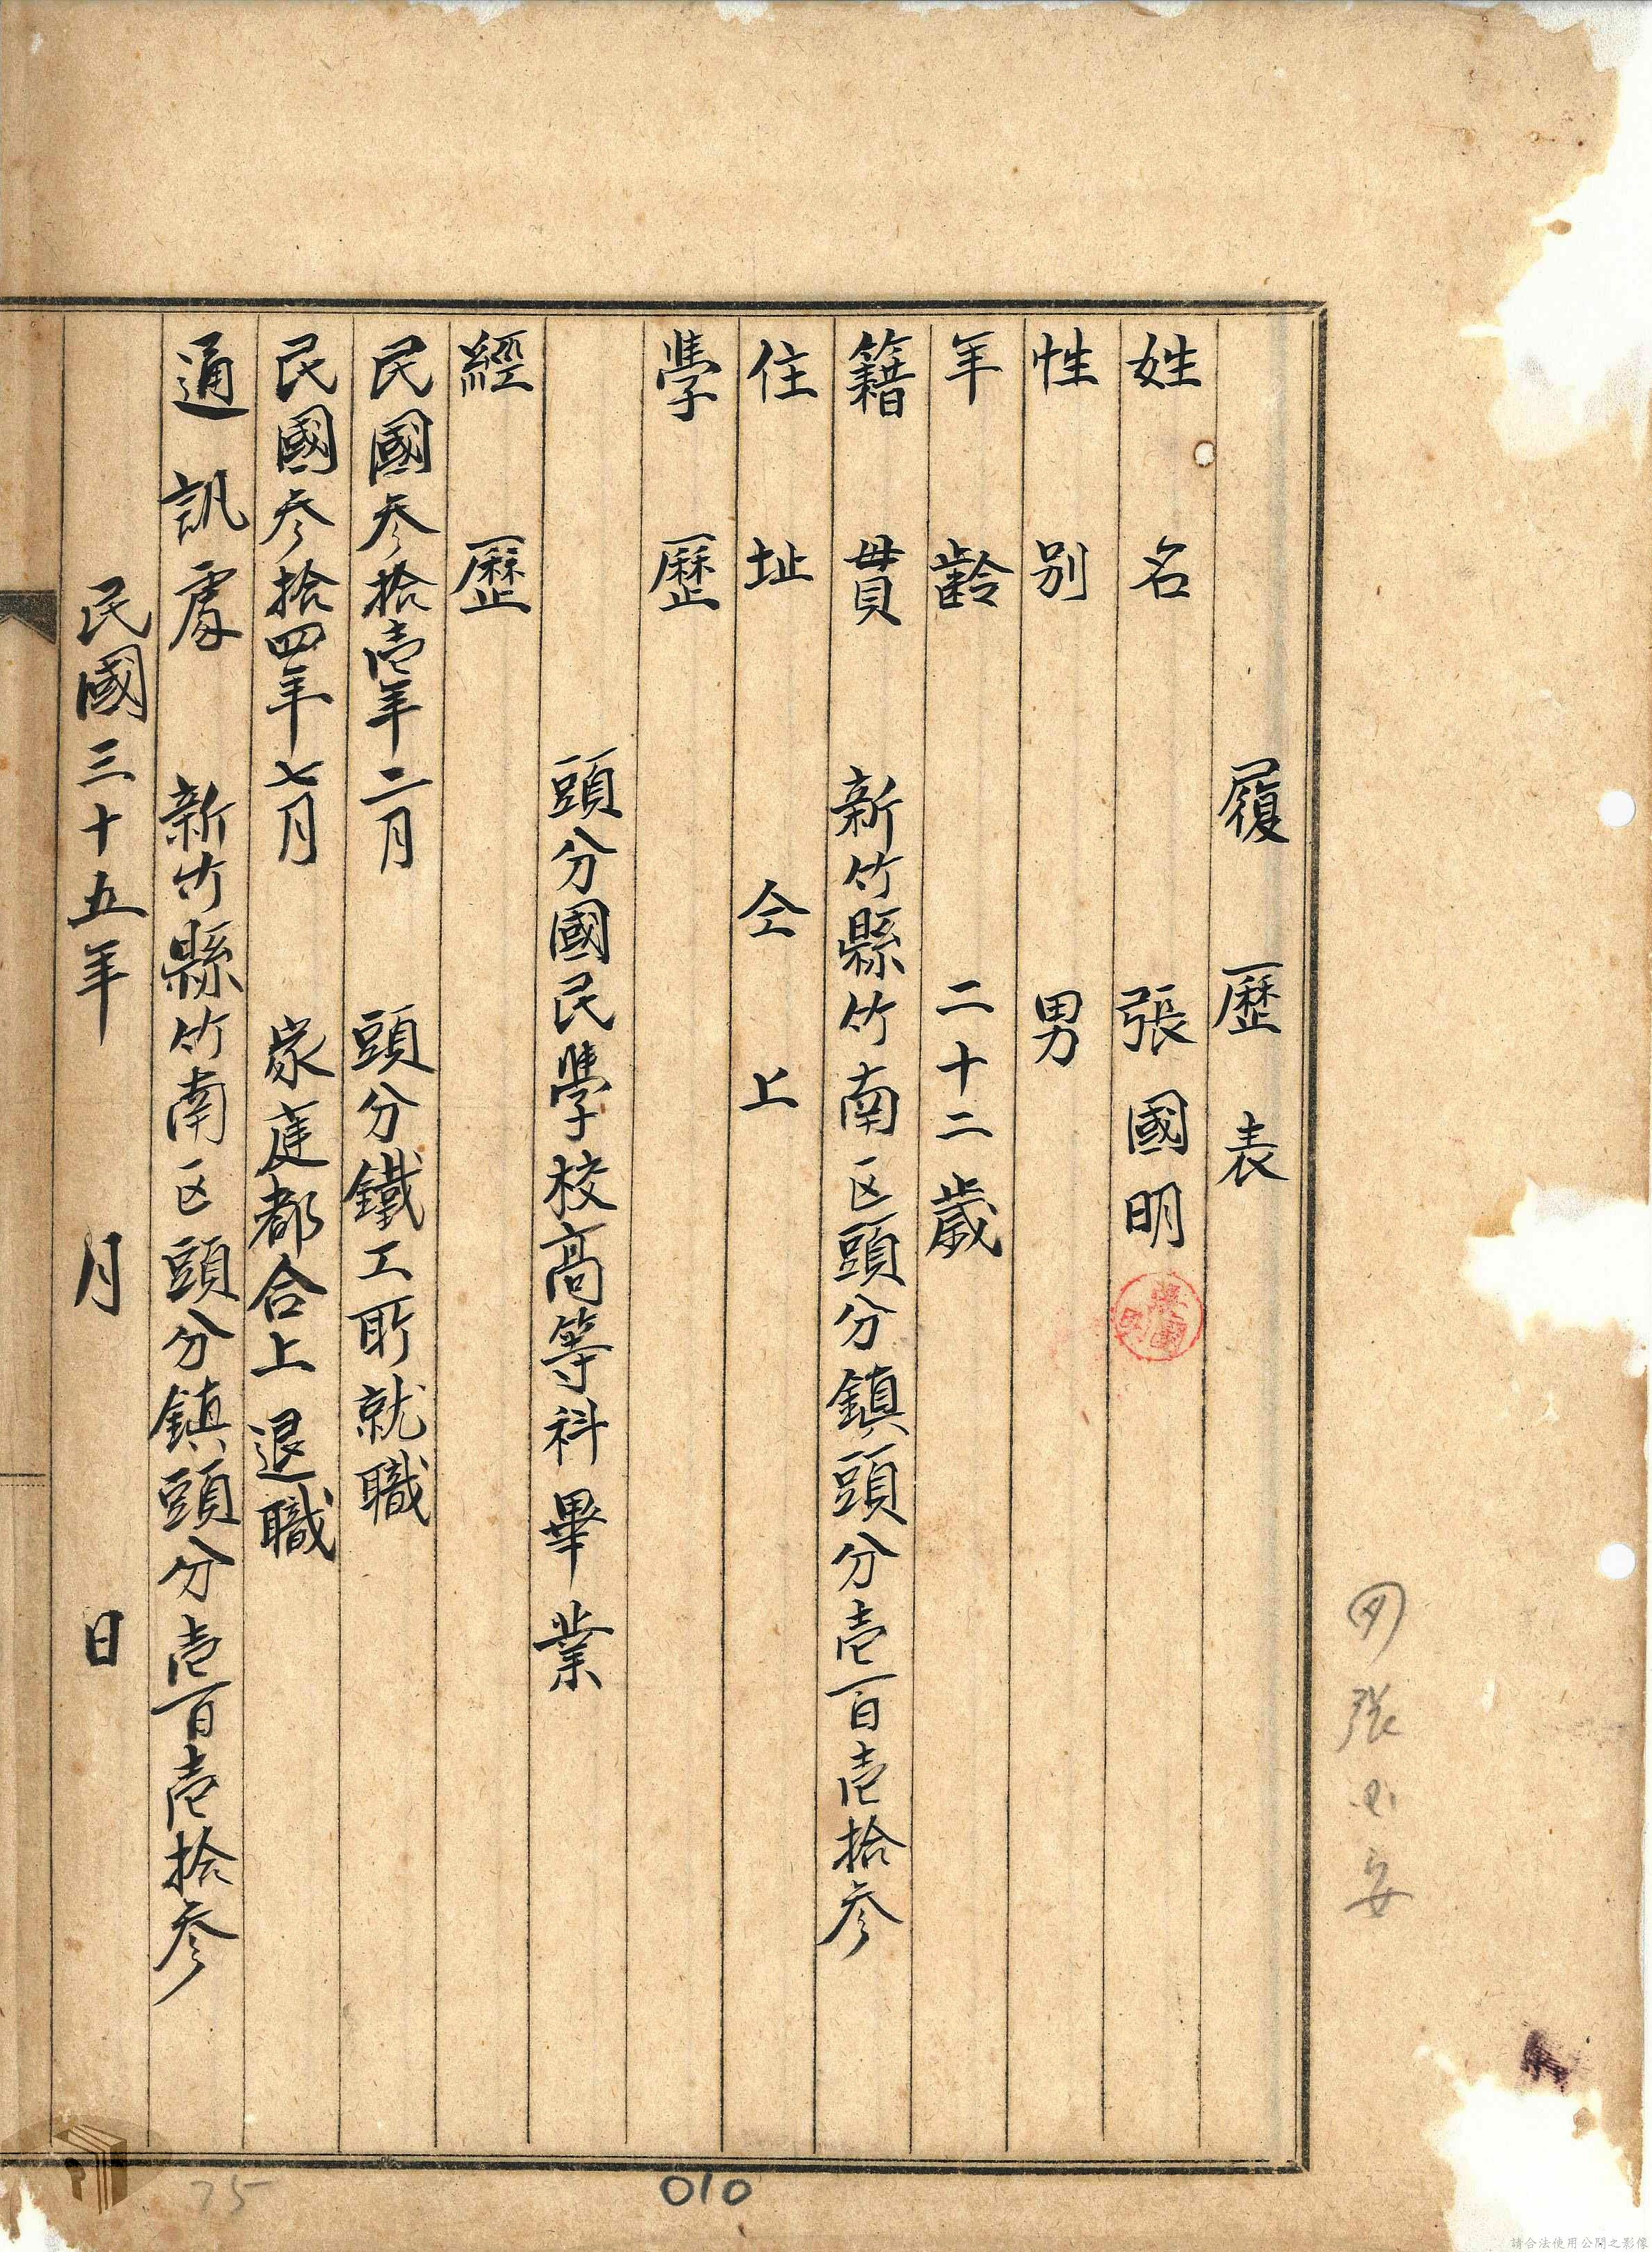 履歷表
姓名 張國明
張國明
性別 男
年齡 二十二歲
籍貫 新竹縣竹南区頭分鎮頭分壱百壱拾参
住址 仝上
學歷
頭分國民學校高等科畢業
經歷
民國参拾壱年二月 頭分鐵工所就職
民國参拾四年七月 家庭都合上退職
通訊處 新竹縣竹南区頭分鎮頭分壱百壱拾参
民國三十五年 月 日
75
010
請合法使用公開之影像